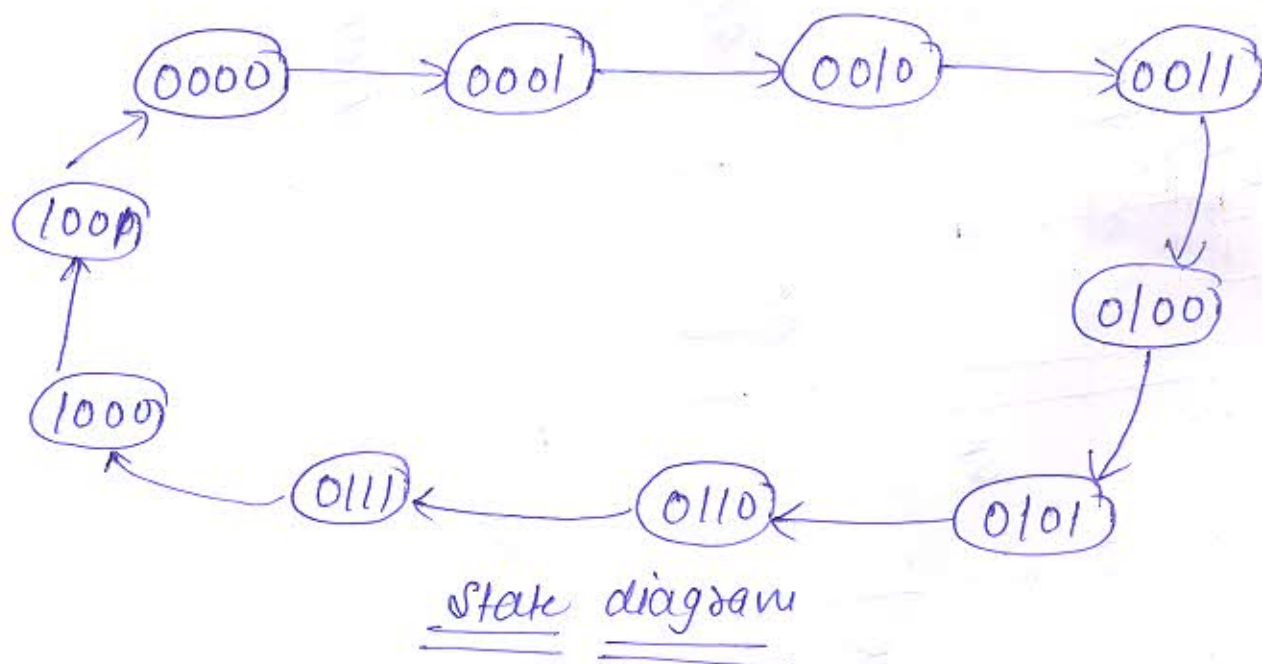 0000 0001 0010 0011
1001
0100
1000
0111 0110 0101
State diagram